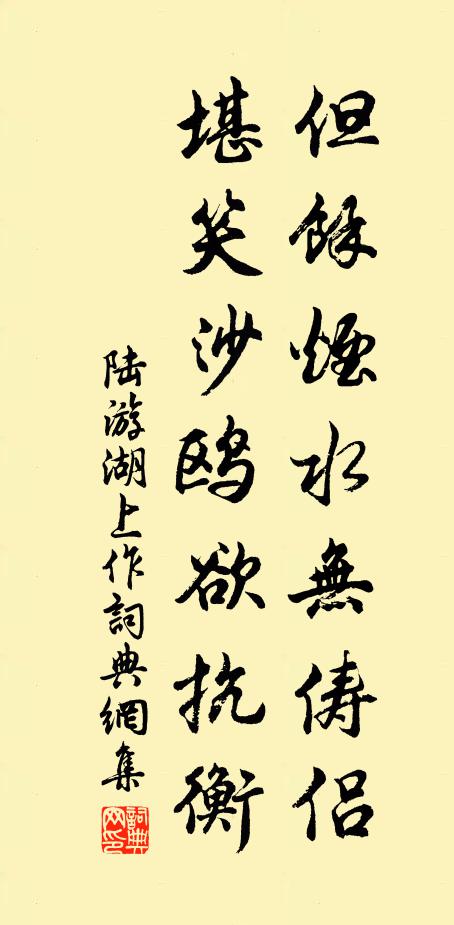 但餘煙水無儔侶
堪笑沙鸥欲抗衡
陆游湖上作詞典網集
詞典网印